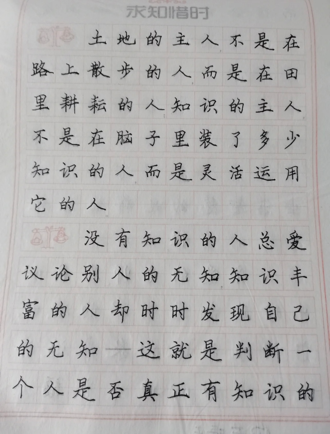 求知惜时
土地的主人不是在
路上散步的人而是在田
里耕耘的人知识的主人
不是在脑子里装了多少
知识的人而是灵活运用
它的人
没有知识的人总爱
议论别人的无知知识丰
富的人却时时发现自己
的无知一这就是判断一
个人是否真正有知识的